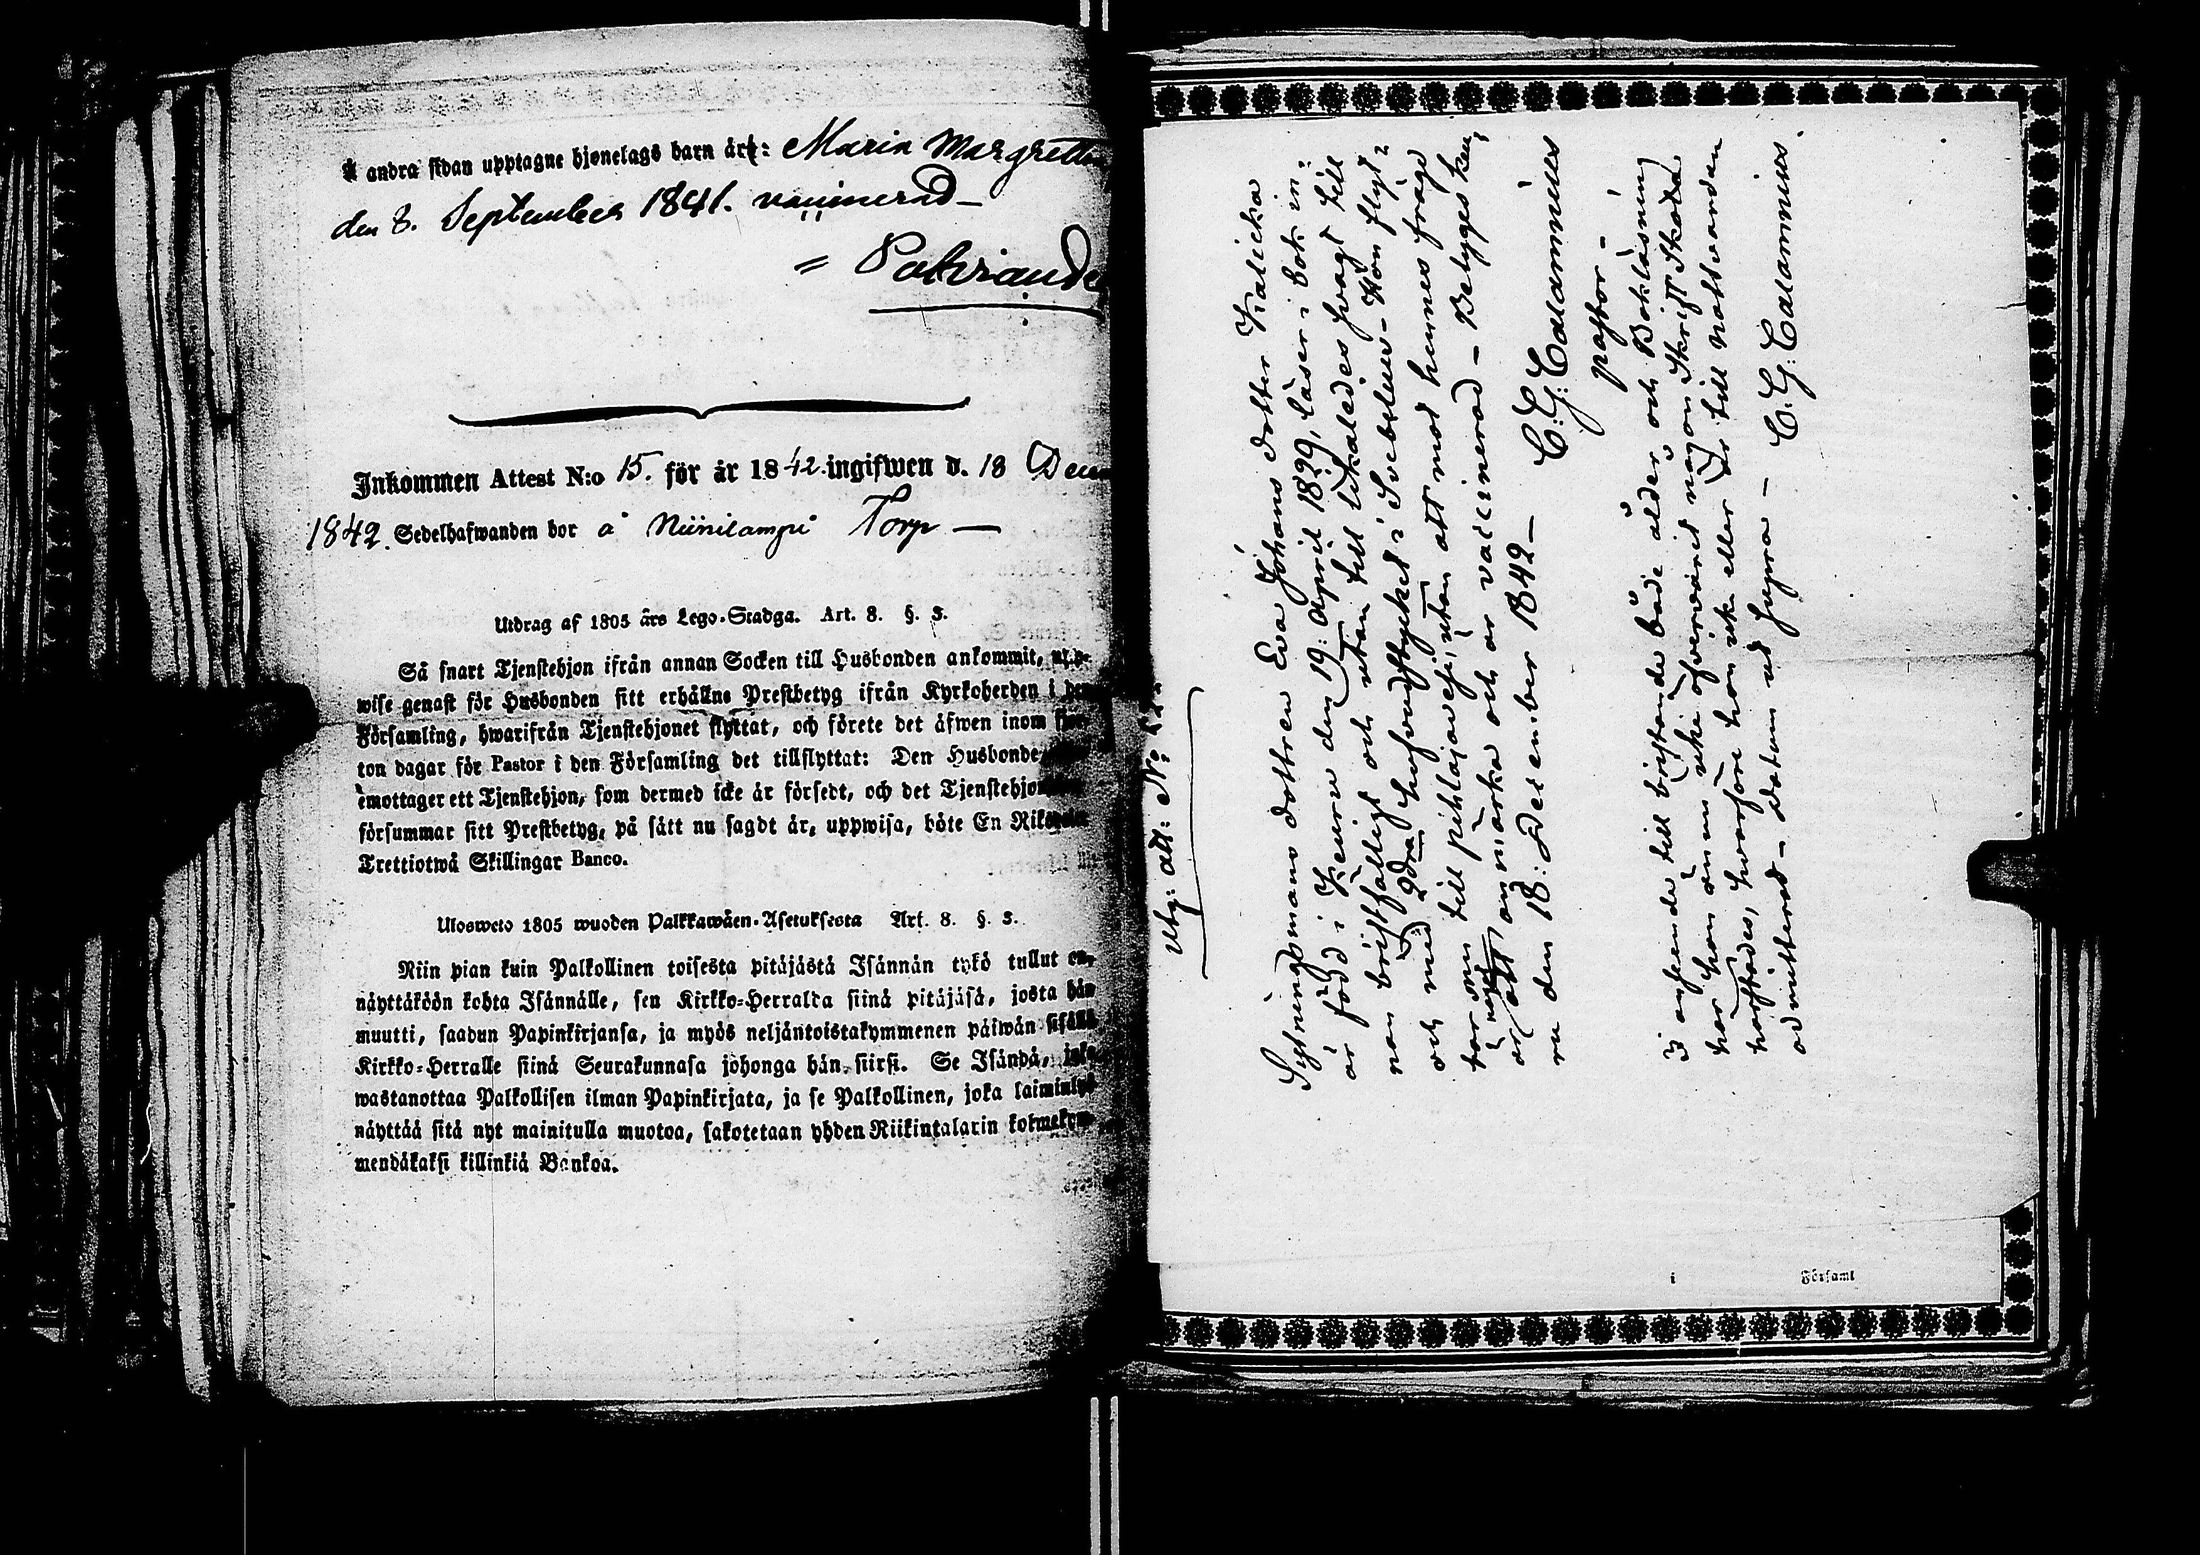 Å andra sidan upptagne hjonelags barn är: Maria Margretta
den 8. September 1841. vaccinerad –
Inkommen Attest N:o 15. för år 1842. ingifwen d. 18 Decem
1842. Sedelhafwanden bor å Niinilampi Torp —
Utdrag af 1805 års Lego-Stadga. Art. 8. §. 3.
Så snart Tjenstehjon ifrån annan Socken till Husbonden ankommit, upp-
wise genast för Husbonden sitt erhållne Prestbetyg ifrån Kyrkoherden i den
Församling, hwarifrån Tjenstehjonet flyttat, och förete det äfwen inom fjor-
ton dagar för Pastor i den Församling det tillflyttat: Den Husbonde
emottager ett Tjenstehjon, som dermed icke är försedt, och det Tjenstehjon
försummar sitt Prestbetyg, på sätt nu sagdt är, uppwisa, böte En Riksdaler
Trettiotwå Skillingar Banco.
Ulosweto 1805 wuoden Palkkawäen-Asetuksesta Art. 8. §. 3.
Niin pian kuin Palkollinen toisesta pitäjästä Isännän tykö tullut on,
näyttäköön kohta Isännälle, sen Kirkko-Herralta siinä pitäjäsä, josta hän
muutti, saadun Papinkirjansa, ja myös neljäntoistakymmenen päiwän sisällä
Kirkko-Herralle siinä Seurakunnasa johonga hän siirsi. Se Isändä, joka
wastanottaa Palkollisen ilman Papinkirjata, ja se Palkollinen, joka laiminlyö
näyttää sitä nyt mainitulla muotoa, sakotetaan yhden Riikintalarin kolmekym-
mendäkaksi killinkiä Bankoa.
Utg: att: No
Sytningsmans dottren Eva Johans dotter Kalicka
är född i Keuru den 19: April 1829, läser i bok in:
nan bristfälligt och utan till likaledes svagt till
och med 2dra hufvudstycket i Svebelius – Hon flyt:
tar nu till Pihlajavesi, utan att mot hennes frägd
är något att anmärka och är vaccinerad – Betygas Keu,
ru den 18: December 1842 —
C: G: Calamnius
pastor –
I anseende till bristande både ålder och Bokläsning
har hon ännu icke öfvervarit någon Skrift Skola
hvarföre hon icke eller är till nattvarden
admitterad – datum ut supra – C: G: Calamnius
i Församl